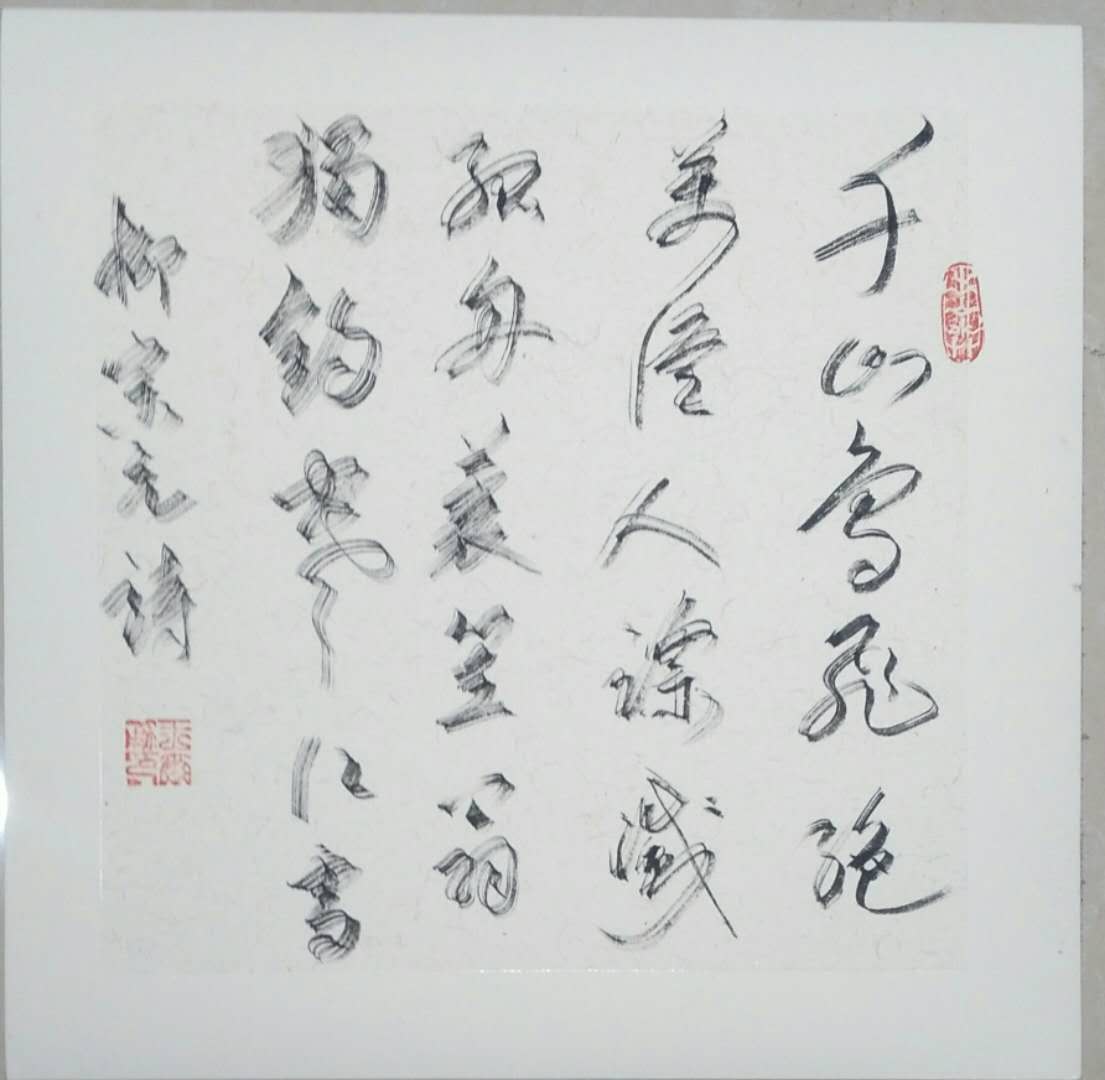 千山鳥飛絕
萬徑人蹤滅
孤舟蓑笠翁
獨釣寒江雪
柳宗元詩